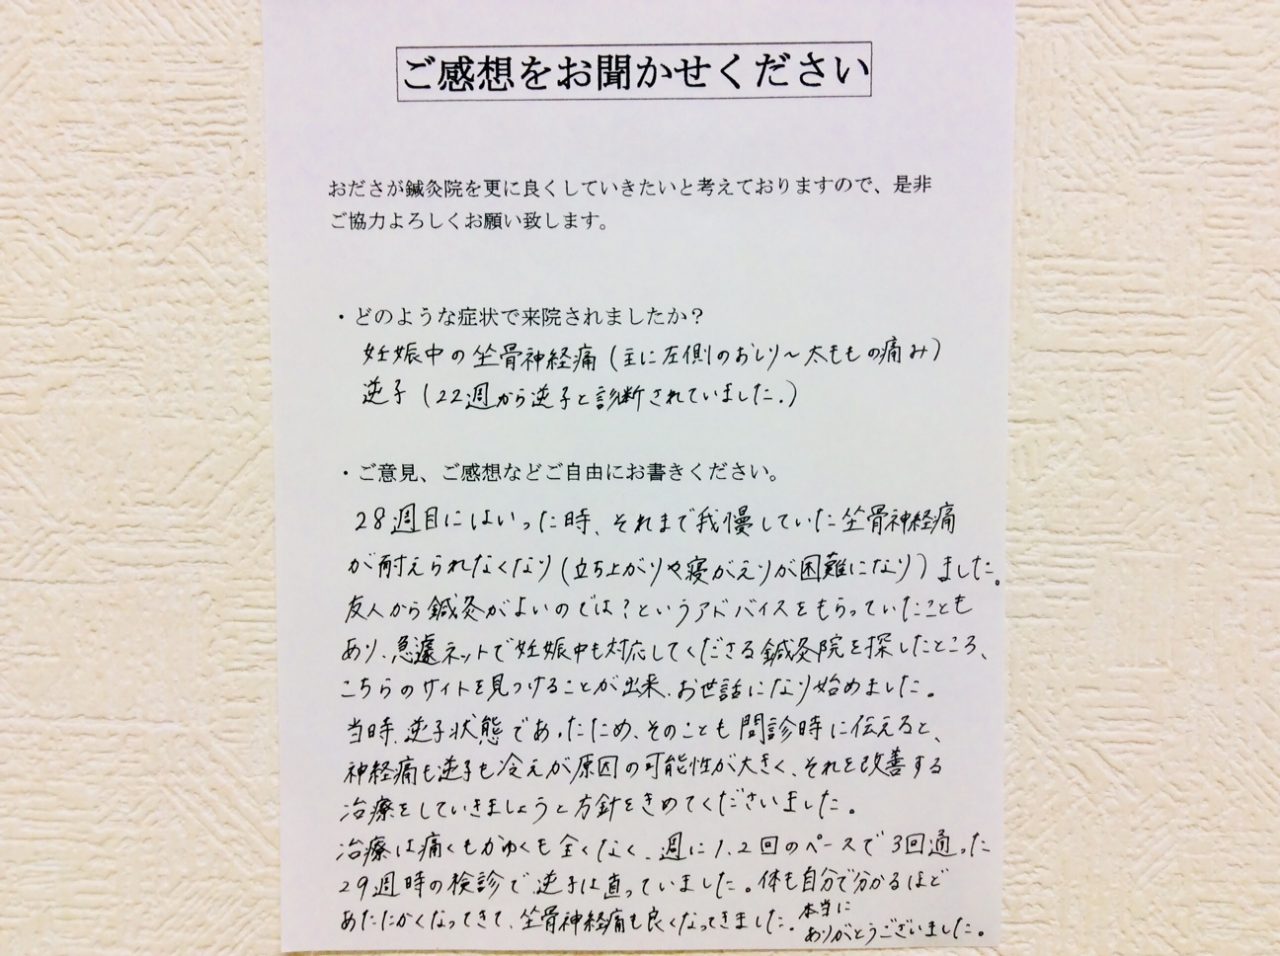 ご感想をお聞かせください
おださが鍼灸院を更に良くしていきたいと考えておりますので、是非
ご協力よろしくお願い致します。
・どのような症状で来院されましたか？
妊娠中の坐骨神経痛（主に左側のおしり～太ももの痛み）
逆子（22週から逆子と診断されていました。）
・ご意見、ご感想などご自由にお書きください。
28週目にはいった時、それまで我慢していた坐骨神経痛
が耐えられなくなり（立ち上がりや寝がえりが困難になり）ました。
友人から鍼灸がよいのでは？というアドバイスをもらっていたことも
あり、急遽ネットで妊娠中も対応してくださる鍼灸院を探したところ、
こちらのサイトを見つけることが出来、お世話になり始めました。
当時、逆子状態であったため、そのことも問診時に伝えると、
神経痛も逆子も冷えが原因の可能性が大きく、それを改善する
治療をしていきましょうと方針をきめてくださいました。
治療は痛くもかゆくも全くなく、週に1、2回のペースで3回通った
29週時の検診で逆子は直っていました。体も自分で分かるほど
あたたかくなってきて、坐骨神経痛も良くなってきました。本当に
ありがとうございました。